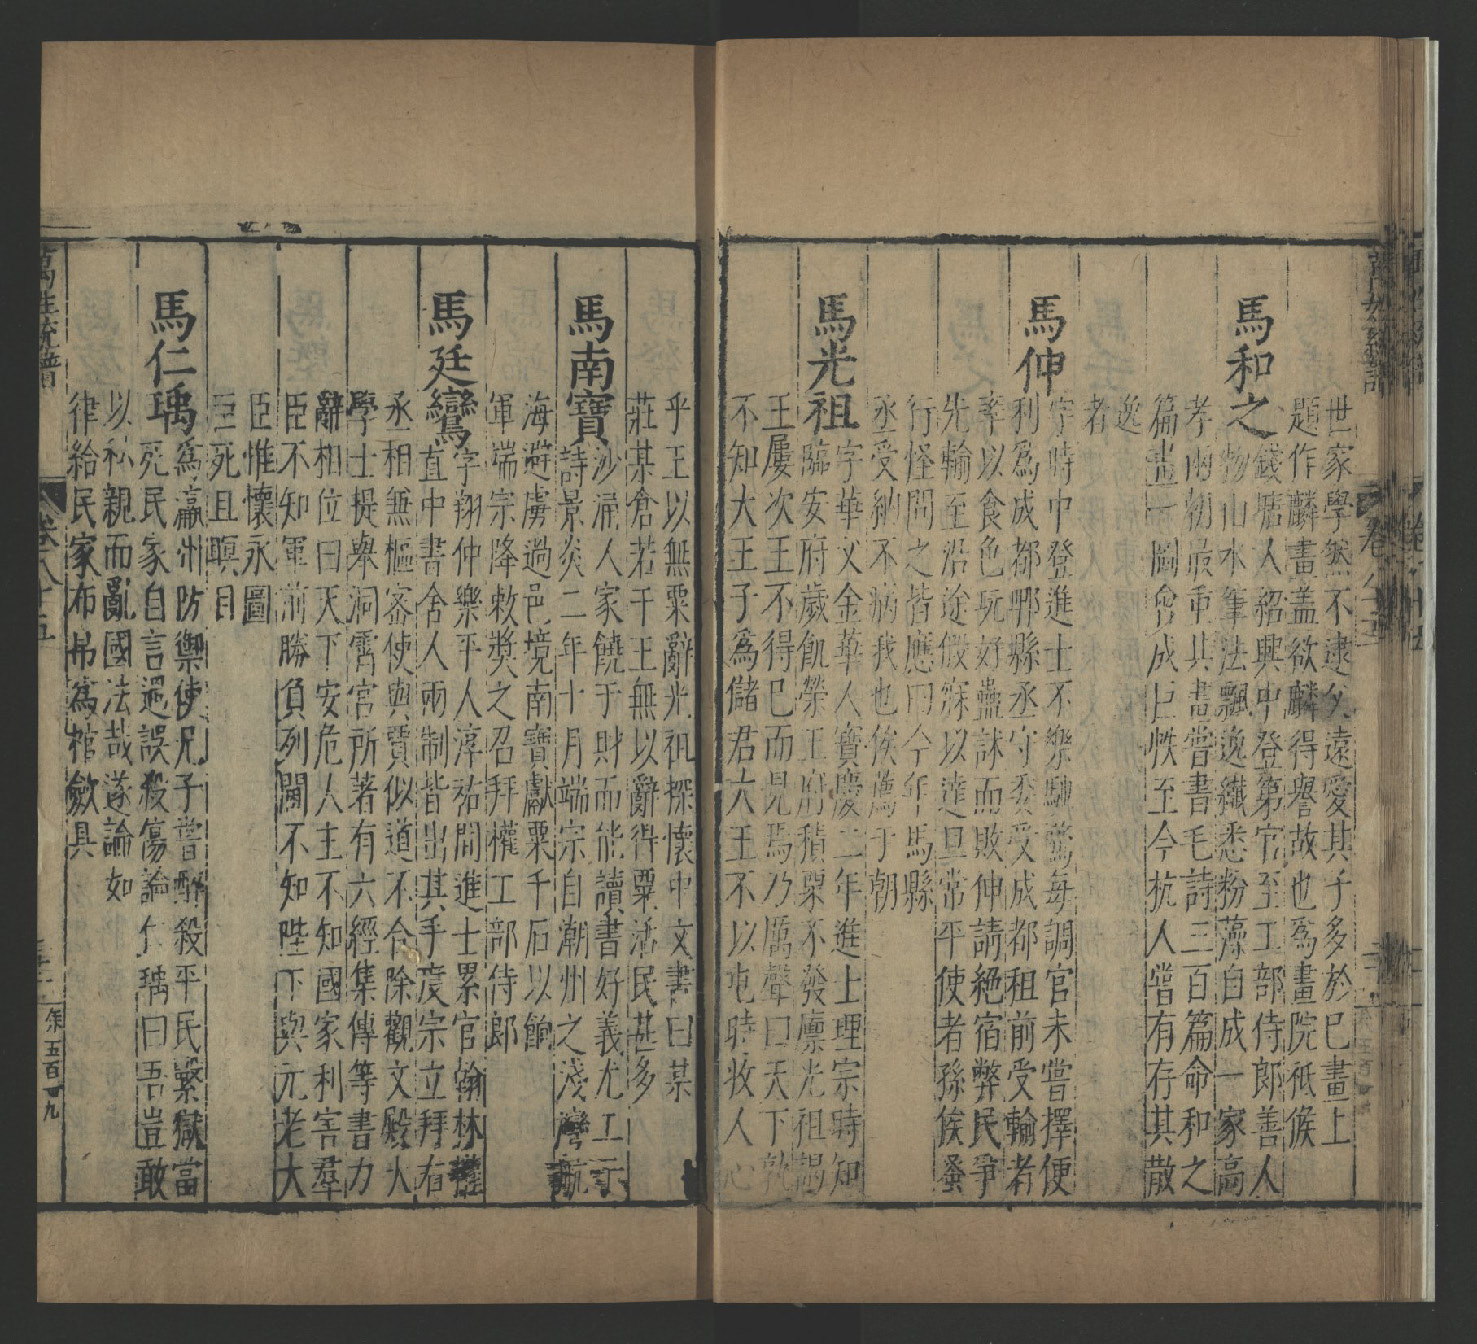 世家學然不逮父遠愛其子多於已畫上
題作麟畫盖欲麟得譽故也爲畫院祗候
馬和之
錢塘人紹興中登第官至工部侍郎善人
物山水筆法飄逸纖悉粉藻自成一家高
孝兩朝最重其畫嘗書毛詩三百篇命和之
篇畫一圖會成巨帙至今抗人嘗有存其散
逸
者
馬伸
字時中登進士不樂馳騖每調官未嘗擇便
利爲成都郫縣丞守委受成都租前受輸者
率以食色玩好蠱訹而敗伸請絶宿弊民爭
先輸至沿途假寐以達旦常平使者孫俟蚤
行怪問之皆應曰今年馬縣
丞受納不病我也俟薦于朝
馬光祖
字華父金華人寶慶二年進士理宗時知
臨安府歲飢榮王府積粟不發廪光祖謁
王屢次王不得已而見焉乃厲聲曰天下孰
不知大王子爲儲君大王不以此時收人心
乎王以無粟辭光祖探懷中文書曰某
莊某倉若干王無以辭得粟活民甚多
馬南寶
沙涌人家饒于財而能讀書好義尤工于
詩景炎二年十月端宗自潮州之淺灣航
海避虜過邑境南寶獻粟千石以餉
軍端宗降敕奬之召拜權工部侍郎
馬廷鸞
字翔仲樂平人淳祐間進士累官翰林權
直中書舍人兩制皆出其手度宗立拜右
丞相無樞宻使與賈似道不合除觀文殿大
學士提舉洞霄宮所著有六經集傳等書力
辭相位曰天下安危人主不知國家利害羣
臣不知軍前勝負列閫不知陛下與元老大
臣惟懷永圖
臣死且瞑目
馬仁瑀
爲瀛州防禦使兄子嘗醉殺平民繫獄當
死民家自言過誤殺傷論仁瑀曰吾豈敢
以私親而亂國法哉遂論如
律給民家布帛爲棺斂具
萬姓統譜
卷八十五